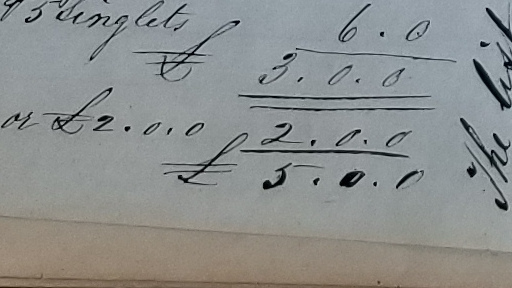 95 Singlets 6.0
£ 3.0.0
or £2.0.0 2.0.0
£ 5.0.0
The